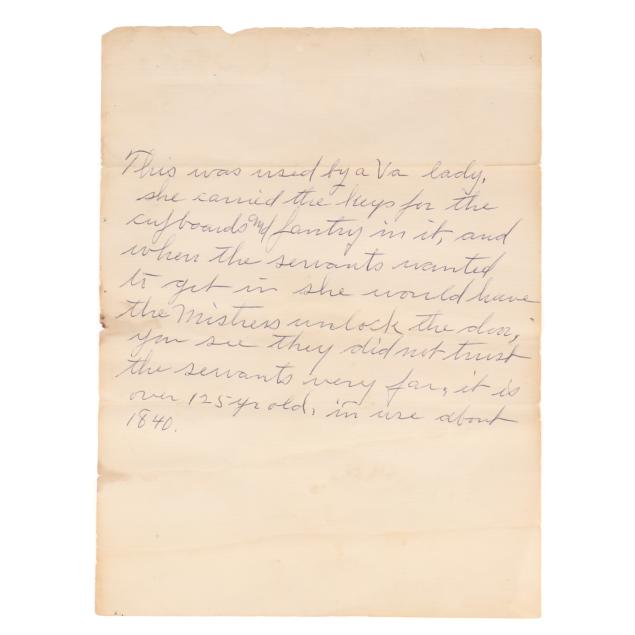 This was used by a Va lady,
she carried the keys for the
cupboards and pantry in it, and
when the servants wanted
to get in she would have
the Mistress unlock the door,
you see they did not trust
the servants very far, it is
over 125 yr old, in use about
1840.